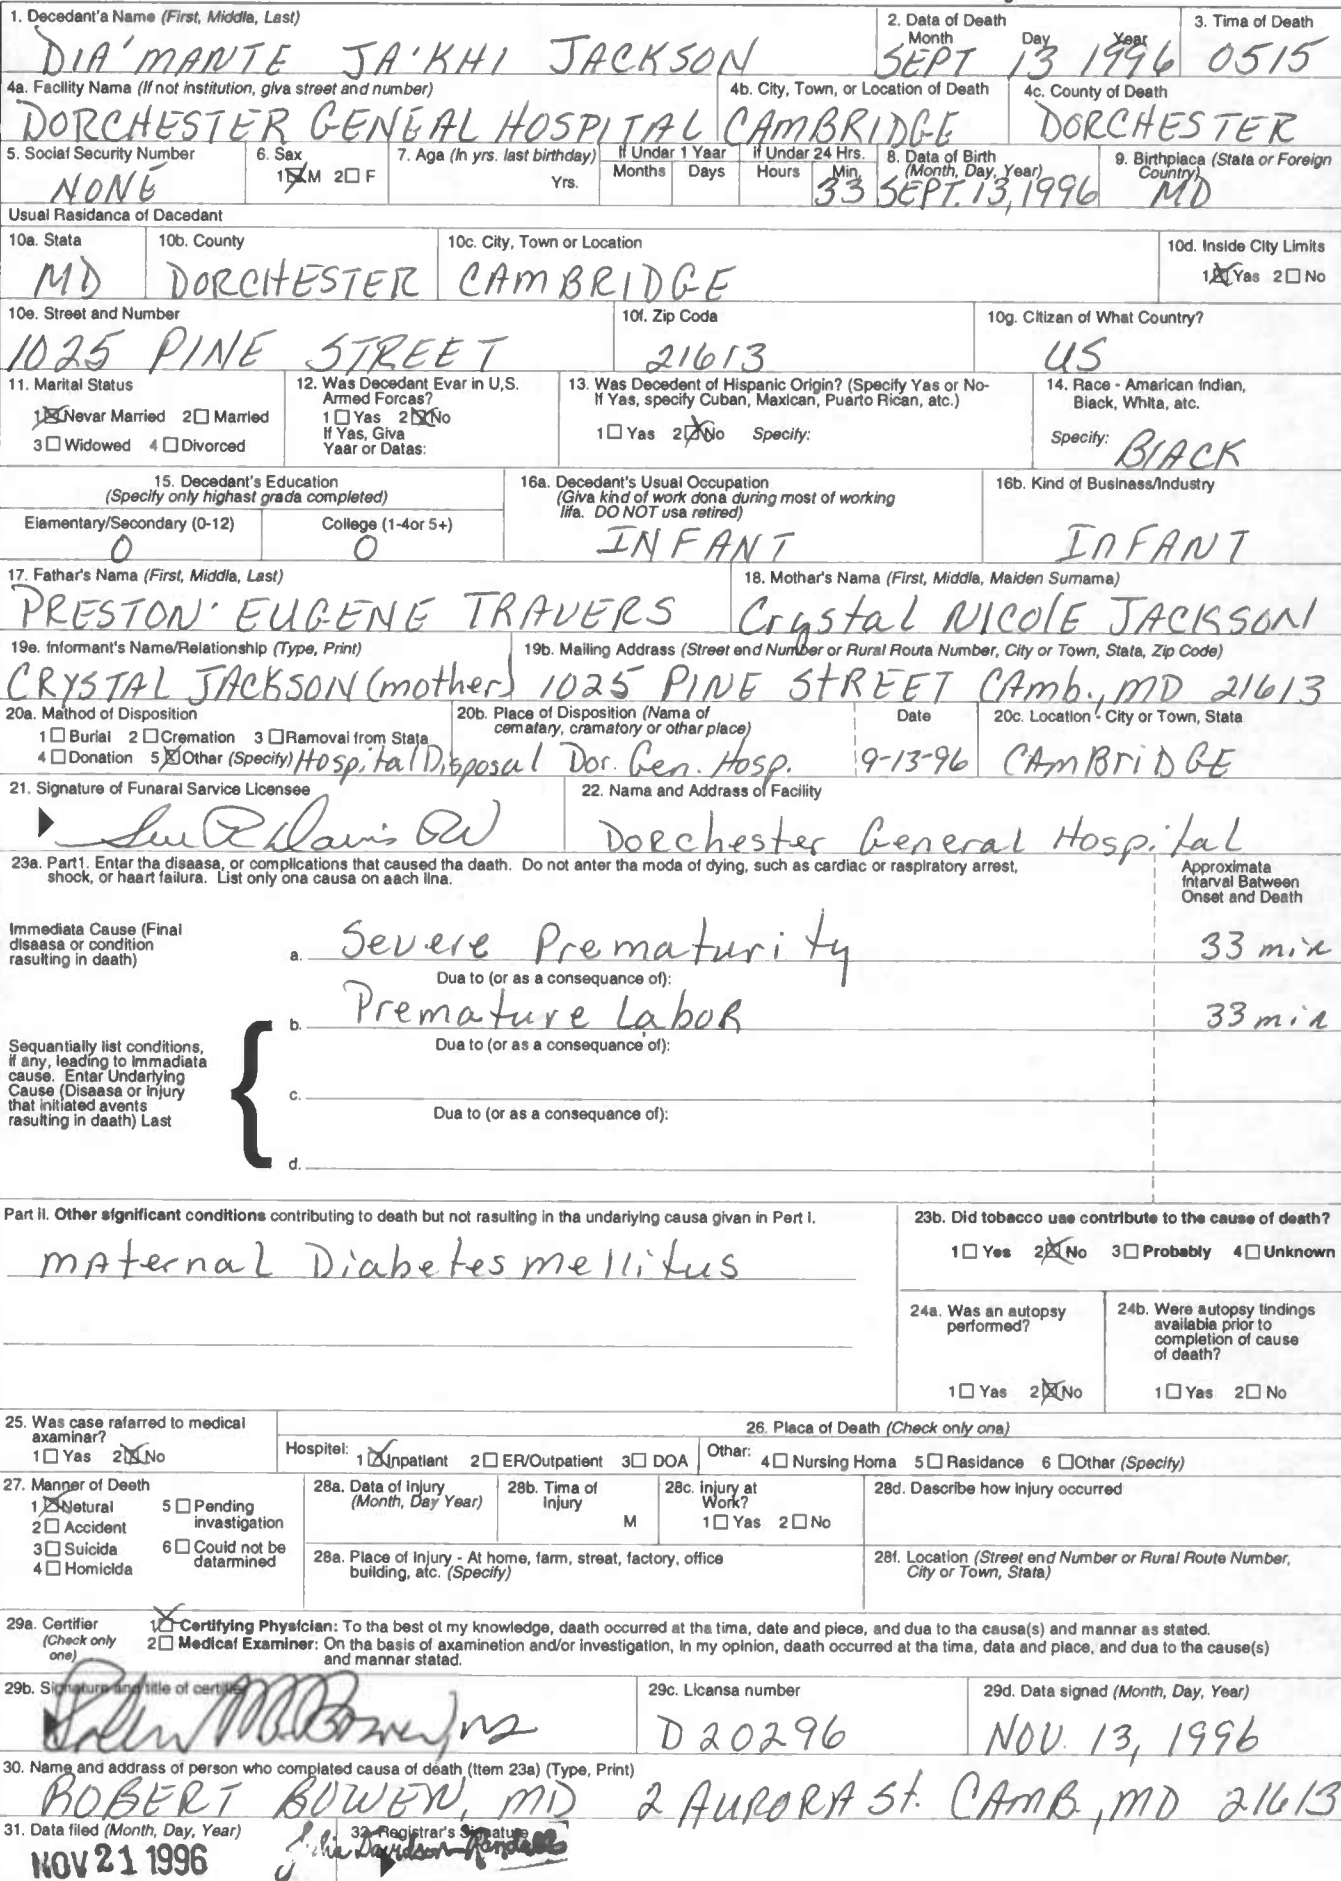 1. Decedant'a Name (First, Middla, Last)
2. Data of Death
Month Day Year
3. Tima of Death
DIA'MANTE JA'KHI JACKSON
SEPT 13 1996
0515
4a. Facility Name (If not institution, giva street and number)
4b. City, Town, or Location of Death
4c. County of Death
DORCHESTER GENEAL HOSPITAL
CAMBRIDGE
DORCHESTER
5. Social Security Number
NONE
6. Sax
1☒M 2☐ F
7. Age (In yrs. last birthday)
Yrs.
If Under 1 Yaar
Months Days
If Under 24 Hrs.
Hours Min.
33
8. Data of Birth
(Month, Day, Year)
SEPT. 13, 1996
9. Birthpiaca (Stata or Foreign
Country)
MD
Usual Rasidanca of Dacedant
10a. Stata
MD
10b. County
DORCHESTER
10c. City, Town or Location
CAMBRIDGE
10d. Inside City Limits
1☒Yas 2☐No
10e. Street and Number
1025 PINE STREET
10f. Zip Coda
21613
10g. Citizan of What Country?
US
11. Marital Status
1☒Nevar Married 2☐ Married
3☐ Widowed 4☐ Divorced
12. Was Decedant Evar in U.S.
Armed Forcas?
1☐Yas 2☒No
If Yas, Giva
Yaar or Datas:
13. Was Decedent of Hispanic Origin? (Specify Yas or No-
If Yas, specify Cuban, Maxican, Puarto Rican, atc.)
1☐Yas 2☒No Specify:
14. Race - Amarican Indian,
Biack, Whita, atc.
Specify: BlACK
15. Decedant's Education
(Spacify only highast grada completed)
Eiamentary/Secondary (0-12)
0
College (1-4or 5+)
0
16a. Decedant's Usual Occupation
(Giva kind of work dona during most of working
lifa. DO NOT usa retired)
INFANT
16b. Kind of Businass/Industry
InFANT
17. Fathar's Nama (First, Middla, Last)
PRESTON EUGENE TRAVERS
18. Mothar's Nama (First, Middla, Maiden Surnama)
Crystal NICOlE JACKSON
19e. Informant's Name/Relationship (Type, Print)
CRYSTAL JACKSON (mother)
19b. Mailing Address (Street end Number or Rural Routa Number, City or Town, Stata, Zip Code)
1025 PINE StREET CAmb., MD 21613
20a. Mathod of Disposition
1☐Burial 2☐Cremation 3☐Ramoval from Stata
4☐Donation 5☒Othar (Specify) Hospital Disposal
20b. Place of Disposition (Nama of
cematary, cramatory or othar place)
Dor. Gen. Hosp.
Date
9-13-96
20c. Location - City or Town, Stata
CAmBRiDGE
21. Signature of Funaral Sarvice Licensee
22. Nama and Address of Facility
Dorchester General Hospital
23a. Part1. Entar tha disaasa, or complications that caused tha daath. Do not anter tha moda of dying, such as cardiac or raspiratory arrest,
shock, or haart failura. List only ona causa on aach lina.
Approximata
Intarval Batween
Onset and Death
Immediata Cause (Final
disaasa or condition
rasulting in daath)
a. Severe Prematurity
33 min
Dua to (or as a consequance of):
b. Premature Labor
33 min
Sequantially list conditions,
if any, leading to immadiata
cause. Entar Undarlying
Cause (Disaasa or injury
that initiated avents
rasulting in daath) Last
Dua to (or as a consequance of):
c.
Dua to (or as a consequance of):
d.
Part II. Other significant conditions contributing to death but not rasulting in tha undarlying causa givan in Part I.
maternal Diabetes mellitus
23b. Did tobacco uae contribute to the cause of death?
1☐ Yes 2☒No 3☐Probably 4☐Unknown
24a. Was an autopsy
performed?
1☐ Yas 2☒No
24b. Were autopsy tindings
availabia prior to
completion of cause
of daath?
1☐Yas 2☐No
25. Was casa rafarred to medical
axaminar?
1☐Yas 2☒No
26. Placa of Death (Check only ona)
Hospitel: 1☒Inpatiant 2☐ER/Outpatient 3☐ DOA
Othar: 4☐Nursing Homa 5☐Rasidance 6☐Othar (Specify)
27. Manner of Deeth
1☒Netural
2☐Accident
3☐Suicida
4☐Homicida
5☐Pending
invastigation
6☐Could not be
datarmined
28a. Data of Injury
(Month, Day Year)
28b. Tima of
Injury
M
28c. Injury at
Work?
1☐Yas 2☐No
28d. Dascribe how injury occurred
28a. Place of Injury - At home, farm, straat, factory, office
building, atc. (Specify)
28f. Location (Street end Number or Rural Route Number,
City or Town, Stata)
29a. Cartifier
(Check only
one)
1☒Certifying Physician: To tha best ot my knowledge, daath occurred at tha tima, date and piece, and dua to tha causa(s) and mannar as stated.
2☐Medical Examiner: On tha basis of axaminetion and/or invastigation, in my opinion, daath occurred at tha tima, data and place, and dua to tha cause(s)
and mannar statad.
29b. Signature and title of certifier
29c. Licansa number
D20296
29d. Data signad (Month, Day, Year)
NOV. 13, 1996
30. Name and address of person who complated causa of death (Item 23a) (Type, Print)
ROBERT BOWEN, MD 2 AURORA St. CAMB, MD 21613
31. Data filed (Month, Day, Year)
NOV 21 1996
32. Registrar's Signature
Julia Davidson-Randall